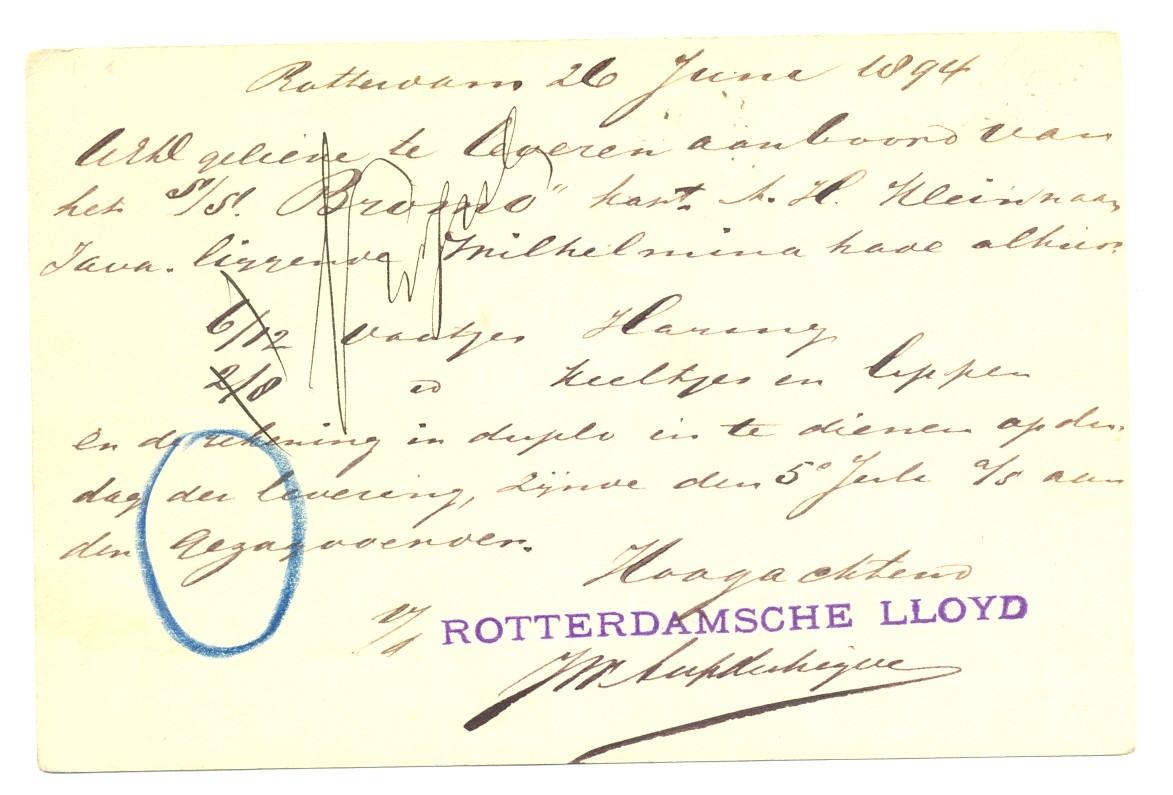 Rotterdam 26 Juni 1894
UEd gelieve te leveren aanboord van
het S/S. "Bromo" kapt. A. H. Klein naar
Java. liggende Wilhelmina kade alhier.
6/12 vaatjes Haring
2/8 id Keeltjes en lippen
en de rekening in duplo in te dienen op den
dag der levering, zijnde den 5° Juli a/s aan
den Gezagvoerder.
Hoogachtend
p/s ROTTERDAMSCHE LLOYD